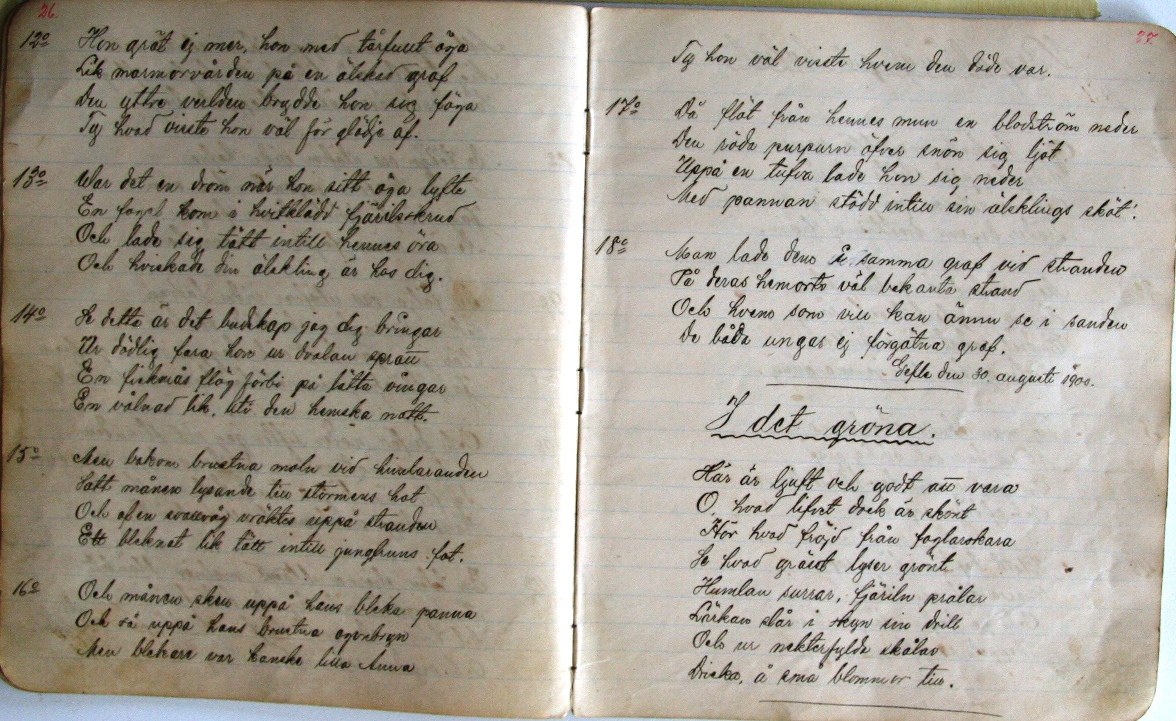 26.
12o Hon grät ej mer, hon med tårfullt öga
Lik marmorvården på en älskad graf
Den yttre verlden brydde hon sig föga
Ty hvad visste hon väl för glädje af.
13o War det en dröm när hon sitt öga lyfte
En fogel kom i hvitklädd fjärilsskrud
Och lade sig tätt intill hennes öra
Och hviskade din älskling är hos dig.
14o Se detta är det budskap jag dig bringar
Ur dödlig fara hon ur dvalan sprall
En fiskmås flög förbi på lätta vingar
En vålnad lik, uti den hemska natt.
15o Men bakom brustna moln vid himlaranden
Satt månen lysande till stormens hot
Och af en svallvåg vräktes uppå stranden
Ett bleknet lik tätt intill jungfruns fot.
16o Och månen sken uppå hans bleka panna
Och så uppå hans brustna ögonbryn
Men blekare var kanske lilla Anna
27.
Ty hon väl visste hvem den döde var.
17o Då flöt från hennes mun en blodström neder
Den röda purpurn öfver snön sig ljöt
Uppå en tufva lade hon sig neder
Med pannan stödd intill sin älsklings sköt.
18o Man lade dem i samma graf vid stranden
På deras hemorts väl bekanta strand
Och hvem som vill kan ännu se i sanden
De båda ungas ej förgätna graf.
Gefle den 30 augusti 1900.
I det gröna.
Här är ljuft och godt att vara
O, hvad lifvet dock är skönt
Hör hvad fröjd från foglarskara
Se hvad gräset lyser grönt
Humlan surrar, fjäriln prålar
Lärkan slår i skyn sin drill
Och ur nekterfylda skålar
Dricka, å små blommor till.